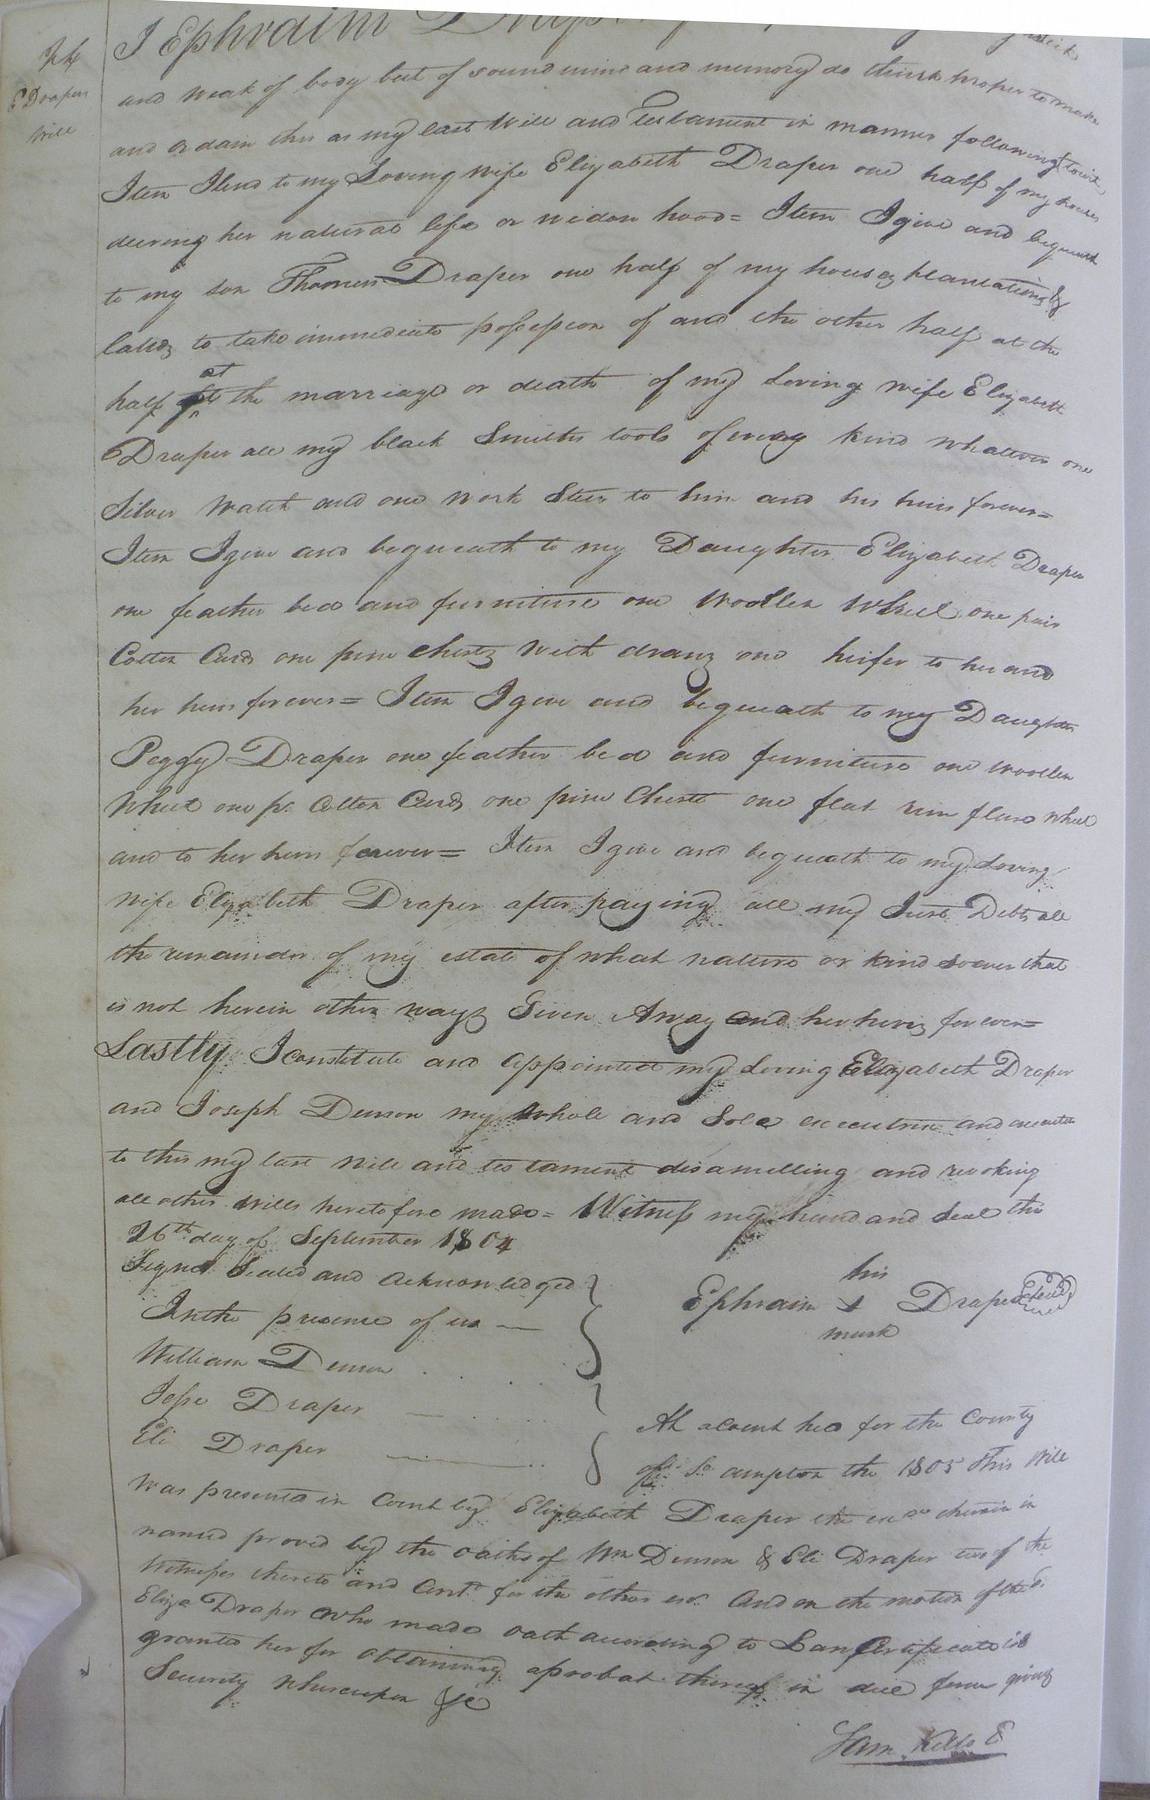 I Ephraim Draper
E Drapers
Will
and weak of body but of sound mind and memory do think proper to make
and ordain this as my last Will and Testament in manner following (towit)
Item I lend to my Loving wife Elizabeth Draper one half of my houses
during her natural life or widow hood = Item I give and bequeath
to my son Thomas Draper one half of my houses plantations &
lands to take immediate possession of and the other half at the
half at the marriage or death of my loving wife Elizabeth
Draper all my black Smiths tools of every kind whatever one
Silver Watch and one work Steer to him and his heirs forever =
Item I give and bequeath to my Daughter Elizabeth Draper
one feather bed and furniture one Woollen Wheel one pair
Cotton Cards one pine chest with one heifer to her and
her heirs forever = Item I give and bequeath to my Daughter
Peggy Draper one feather bed and furniture one woollen
Wheel one pr. Cotton Cards one pine Chest one flat rim flax wheel
and to her heirs forever = Item I give and bequeath to my loving
wife Elizabeth Draper after paying all my Just Debts all
the remainder of my estate of what nature or kind soever that
is not herein other ways Given Away and her heirs forever =
Lastly I constitute and appointed my loving Elizabeth Draper
and Joseph Denson my whole and Sole executrix and executor
to this my last will and testament disannulling and revoking
all other Wills heretofore made = Witness my hand and Seal this
26th day of September 1804
Signed Sealed and acknowledged
In the presence of us —
William Denson
Jesse Draper
Eli Draper
his
Ephraim + Draper (Seal)
mark
At a Court held for the County
of So ampton the 1805 This Will
Was presented in Court by Elizabeth Draper the exrx therein
named proved by the oaths of Wm Denson & Eli Draper two of the
Witnesses thereto and for the other exr. And on the motion of the sd.
Eliza Draper who made oath according to Law Certificate is
granted her for obtaining a probat thereof in due form giving
Security Whereupon &c
Sam. Kello C